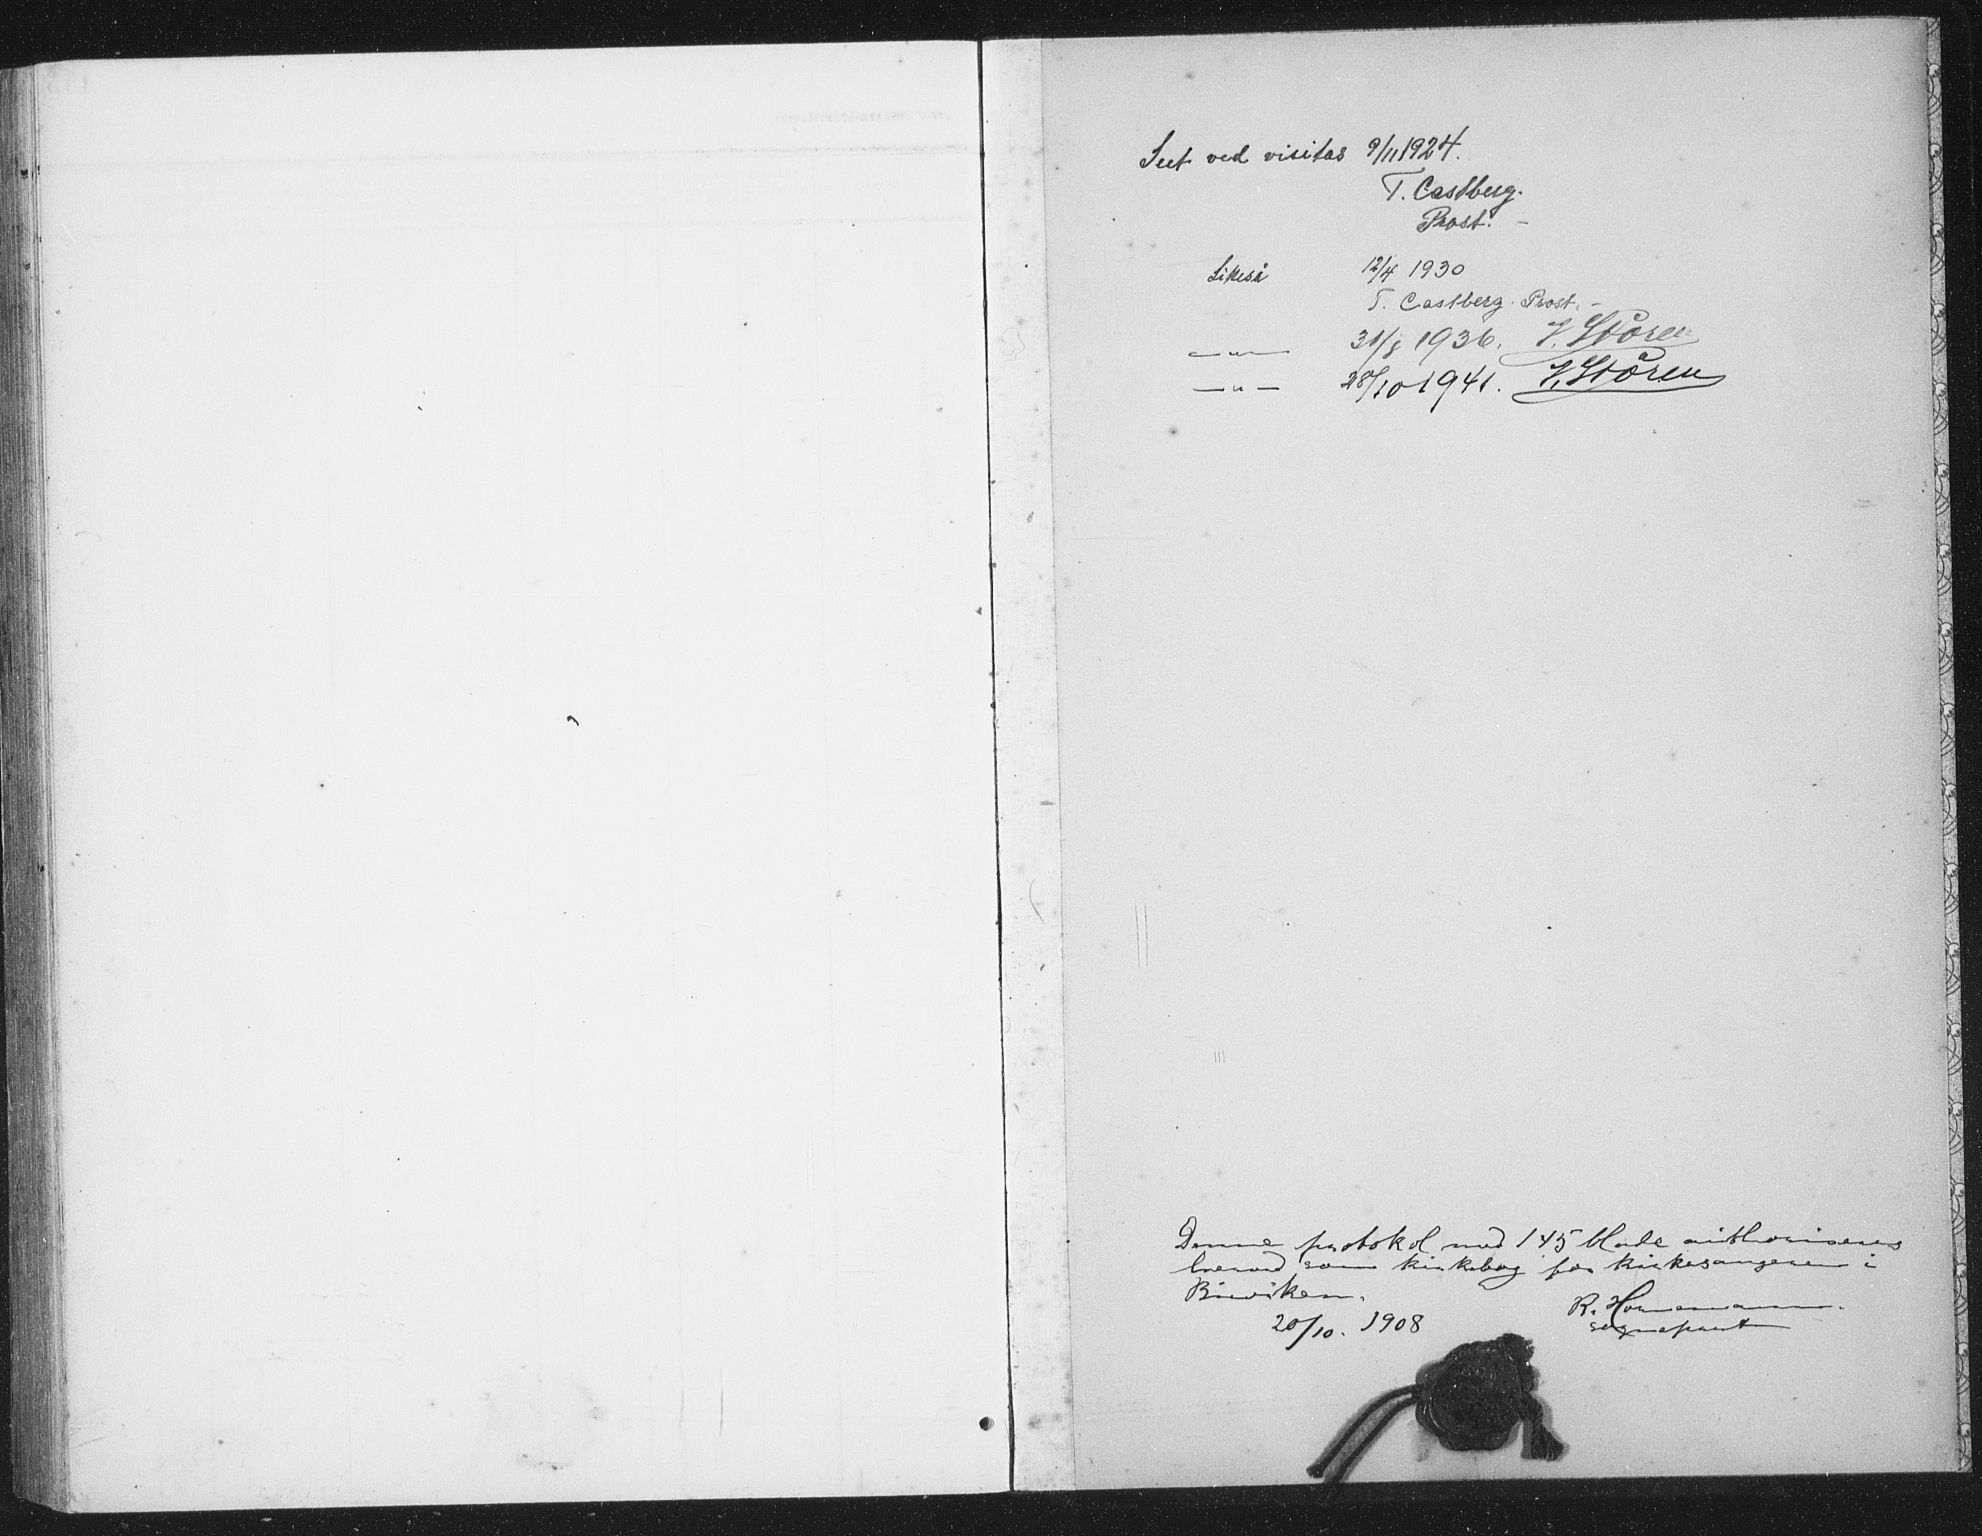 Seet ved visitas 9/11 1924.
T. Castberg.
Prost. -
Likeså 12/4 1930
T. Castberg. Prost. -
— " — 31/8 1936. V. Støren
— " — 28/10 1941. V. Støren
Denne protokol med 145 blade authoriseres
herved som kirkebog for kirkesangeren i
Binviken.
20/10. 1908 R. Hornemann.
sogneprest